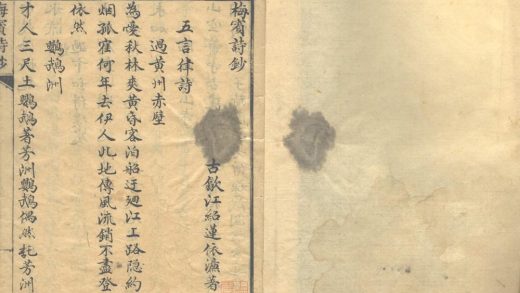 梅賓詩鈔
古歙江紹蓮依濂著
五言律詩
過黃州赤壁
為愛秋林爽黃昏客泊船迂廻江上路隱約
烟孤寉何年去伊人此地傳風流銷不盡登
依然
鸚鵡洲
才人三尺土鸚鵡著芳洲鸚鵡偶然託芳洲
梅賓詩鈔